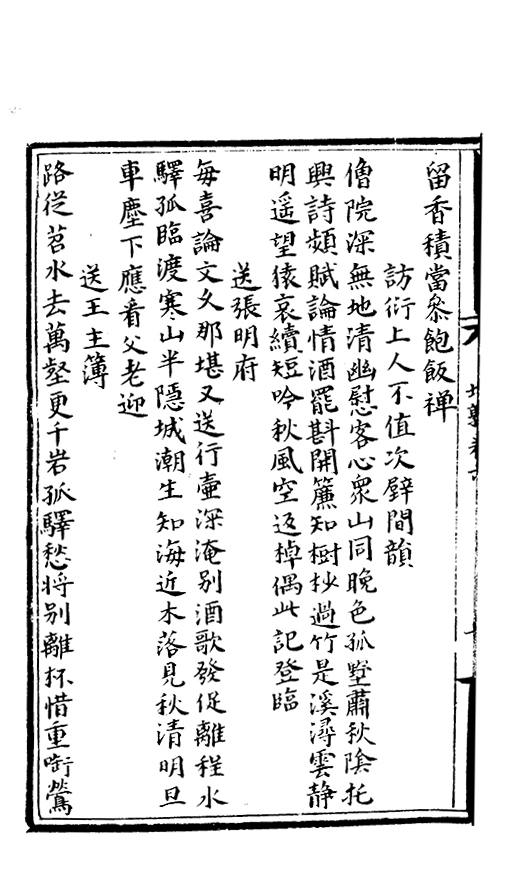 留香積當叅飽飯禅
訪衍上人不值次壁間韻
僧院深無地清幽慰客心衆山同晚色孤墅蕭秋陰托
興詩頻賦論情酒罷斟開簾知樹抄過竹是溪潯雲静
明遥望猿哀續短吟秋風空返棹偶此記登臨
送張明府
每喜論文久那堪又送行壷深淹别酒歌發促離程水
驛孤臨渡寒山半隱城潮生知海近木落見秋清明旦
車塵下應看父老迎
送王主簿
路從苕水去萬壑更千岩孤驛愁将别離杯惜重啣鶯